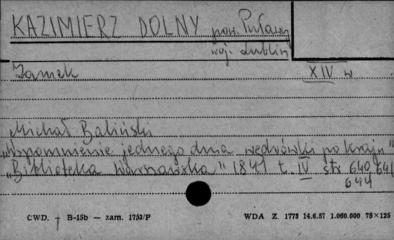 KAZIMIERZ DOLNY pow. Puławy
woj. Lublin
Zamek XIV w
Michał Baliński
„Wspomnienie jednego dnia wędrówki po kraju"
„Biblioteka Warszawska" 1841 t. IV str 640, 641
644
CWD. — B-15b — zam. 1753/P WDA Z. 1773 14.6.57 1.060.000 75×125